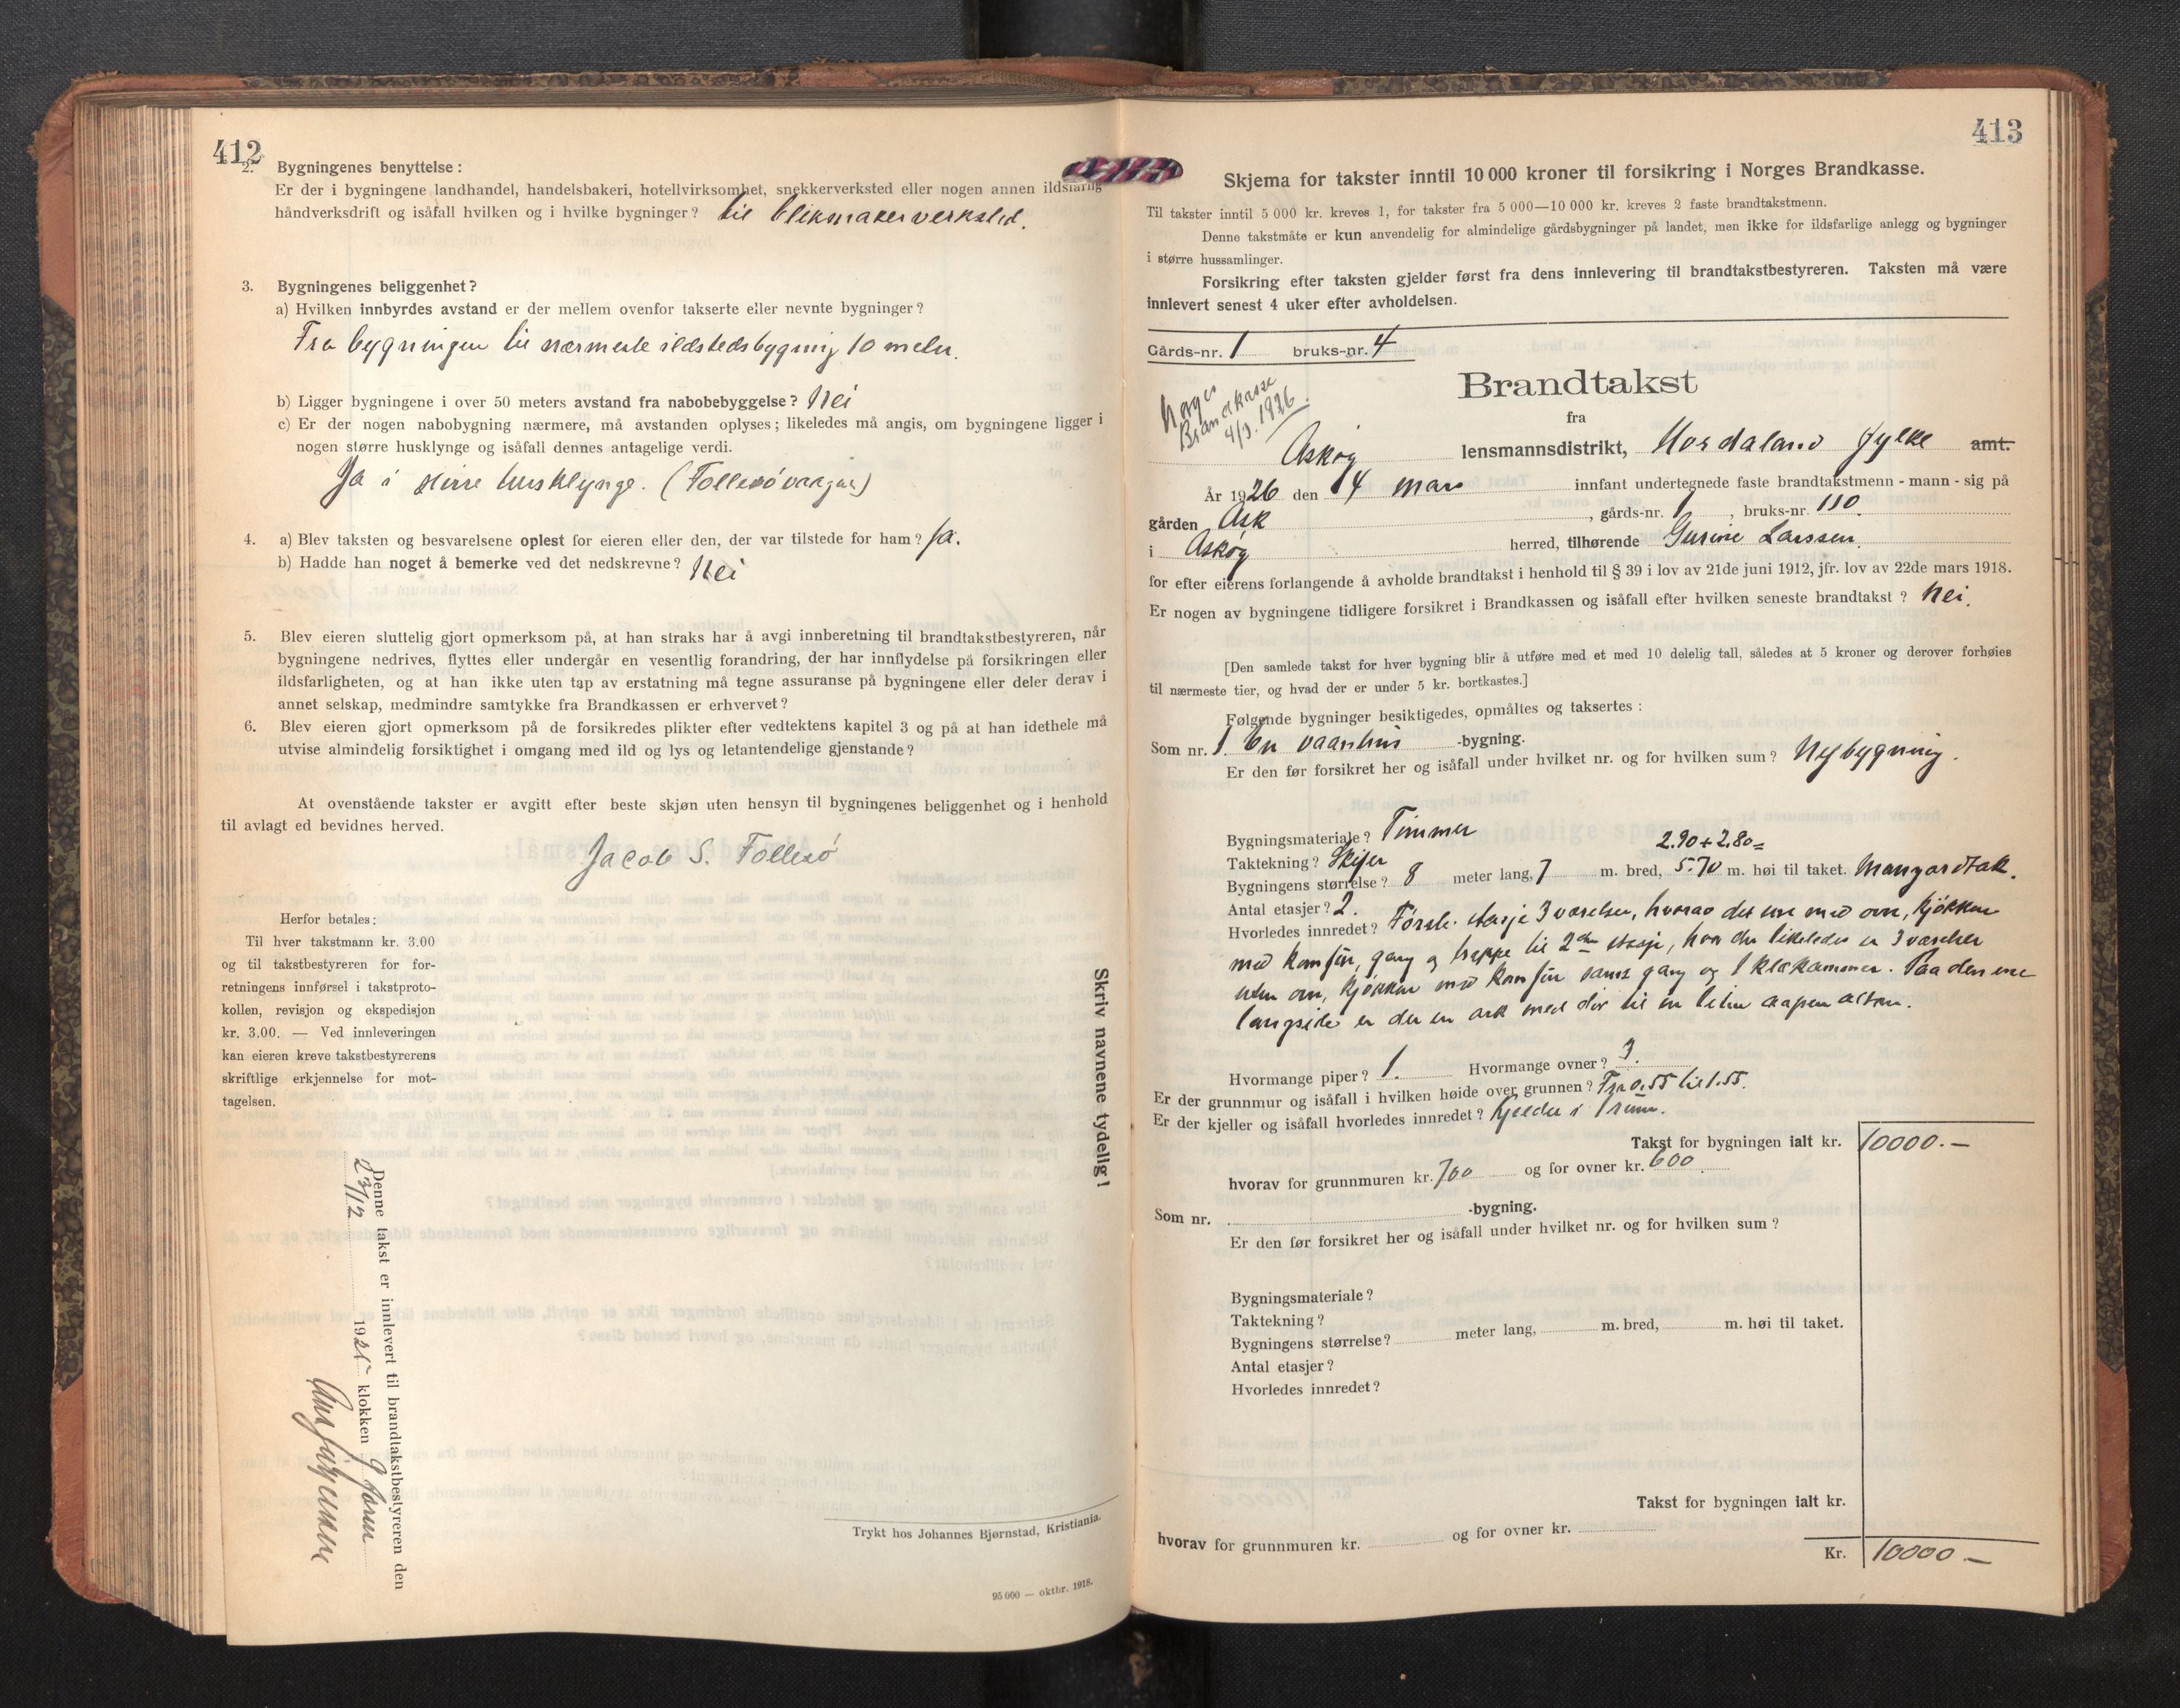 412
2. Bygningenes benyttelse:
Er der i bygningene landhandel, handelsbakeri, hotellvirksomhet, snekkerverksted eller nogen annen ildsfarlig
håndverksdrift og isåfall hvilken og i hvilke bygninger? til blikmakerverksted.
3. Bygningenes beliggenhet?
a) Hvilken innbyrdes avstand er der mellem ovenfor takserte eller nevnte bygninger?
Fra bygningen til nærmeste ildstedsbygning 10 meter.
b) Ligger bygningene i over 50 meters avstand fra nabobebyggelse? Nei
c) Er der nogen nabobygning nærmere, må avstanden oplyses; likeledes må angis, om bygningene ligger i
nogen større husklynge og isåfall dennes antagelige verdi.
Ja i större husklynge. (Follesövaagen)
4. a) Blev taksten og besvarelsene oplest for eieren eller den, der var tilstede for ham? Ja.
b) Hadde han noget å bemerke ved det nedskrevne? Nei
5. Blev eieren sluttelig gjort opmerksom på, at han straks har å avgi innberetning til brandtakstbestyreren, når
bygningene nedrives, flyttes eller undergår en vesentlig forandring, der har innflydelse på forsikringen eller
ildsfarligheten, og at han ikke uten tap av erstatning må tegne assuranse på bygningene eller deler derav i
annet selskap, medmindre samtykke fra Brandkassen er erhvervet?
6. Blev eieren gjort opmerksom på de forsikredes plikter efter vedtektens kapitel 3 og på at han idethele må
utvise almindelig forsiktighet i omgang med ild og lys og letantendelige gjenstande?
At ovenstående takster er avgitt efter beste skjøn uten hensyn til bygningenes beliggenhet og i henhold
til avlagt ed bevidnes herved.
Jacob S. Follesö
Herfor betales:
Til hver takstmann kr. 3.00
og til takstbestyreren for for-
retningens innførsel i takstproto-
kollen, revisjon og ekspedisjon
kr. 3.00. — Ved innleveringen
kan eieren kreve takstbestyrerens
skriftlige erkjennelse for mot-
tagelsen.
Skriv navnene tydelig!
Denne takst er innlevert til brandtakstbestyreren den
23/12 1925 klokken 9 form
Trykt hos Johannes Bjørnstad, Kristiania.
95 000 — oktbr. 1918.
413
Skjema for takster inntil 10 000 kroner til forsikring i Norges Brandkasse.
Til takster inntil 5 000 kr. kreves 1, for takster fra 5 000—10 000 kr. kreves 2 faste brandtakstmenn.
Denne takstmåte er kun anvendelig for almindelige gårdsbygninger på landet, men ikke for ildsfarlige anlegg og bygninger
i større hussamlinger.
Forsikring efter taksten gjelder først fra dens innlevering til brandtakstbestyreren. Taksten må være
innlevert senest 4 uker efter avholdelsen.
Gårds-nr. 1 bruks-nr. 4
Norges
Brandkasse
4/3. 1926.
Brandtakst
fra
Askøy lensmannsdistrikt, Hordaland fylke amt.
År 1926 den 4 mars innfant undertegnede faste brandtakstmenn - mann - sig på
gården Ask, gårds-nr. 1, bruks-nr. 110.
i Askøy herred, tilhørende Gurine Larssen.
for efter eierens forlangende å avholde brandtakst i henhold til § 39 i lov av 21de juni 1912, jfr. lov av 22de mars 1918.
Er nogen av bygningene tidligere forsikret i Brandkassen og isåfall efter hvilken seneste brandtakst? Nei.
[Den samlede takst for hver bygning blir å utføre med et med 10 delelig tall, således at 5 kroner og derover forhøies
til nærmeste tier, og hvad der er under 5 kr. bortkastes.]
Følgende bygninger besiktigedes, opmåltes og taksertes:
Som nr. 1. En vaanhus -bygning.
Er den før forsikret her og isåfall under hvilket nr. og for hvilken sum? Nybygning.
Bygningsmateriale? Tømmer
Taktekning? Skifer
2.90+2.80=
Bygningens størrelse? 8 meter lang, 7 m. bred, 5.70 m. høi til taket. Mansardtak.
Antal etasjer? 2.
Hvorledes innredet? Første etasje 3 værelser, hvorav det ene med ovn, kjøkken
med komfür, gang og trappe til 2den etasje, hvor der likeledes er 3 værelser
uten ovn, kjøkken med komfür samt gang og 1 klækammer. Paa den ene
langside er der en ark med dör til en liten aapen altan.
Hvormange piper? 1. Hvormange ovner? 3.
Er der grunnmur og isåfall i hvilken høide over grunnen? Fra 0.55 til 1.55.
Er der kjeller og isåfall hvorledes innredet? Kjelder i 1 rum.
Takst for bygningen ialt kr. 10000.—
hvorav for grunnmuren kr. 700 og for ovner kr. 600
Som nr. -bygning.
Er den før forsikret her og isåfall under hvilket nr. og for hvilken sum?
Bygningsmateriale?
Taktekning?
Bygningens størrelse? meter lang, m. bred, m. høi til taket.
Antal etasjer?
Hvorledes innredet?
Takst for bygningen ialt kr.
hvorav for grunnmuren kr. og for ovner kr.
Kr. 10000 —